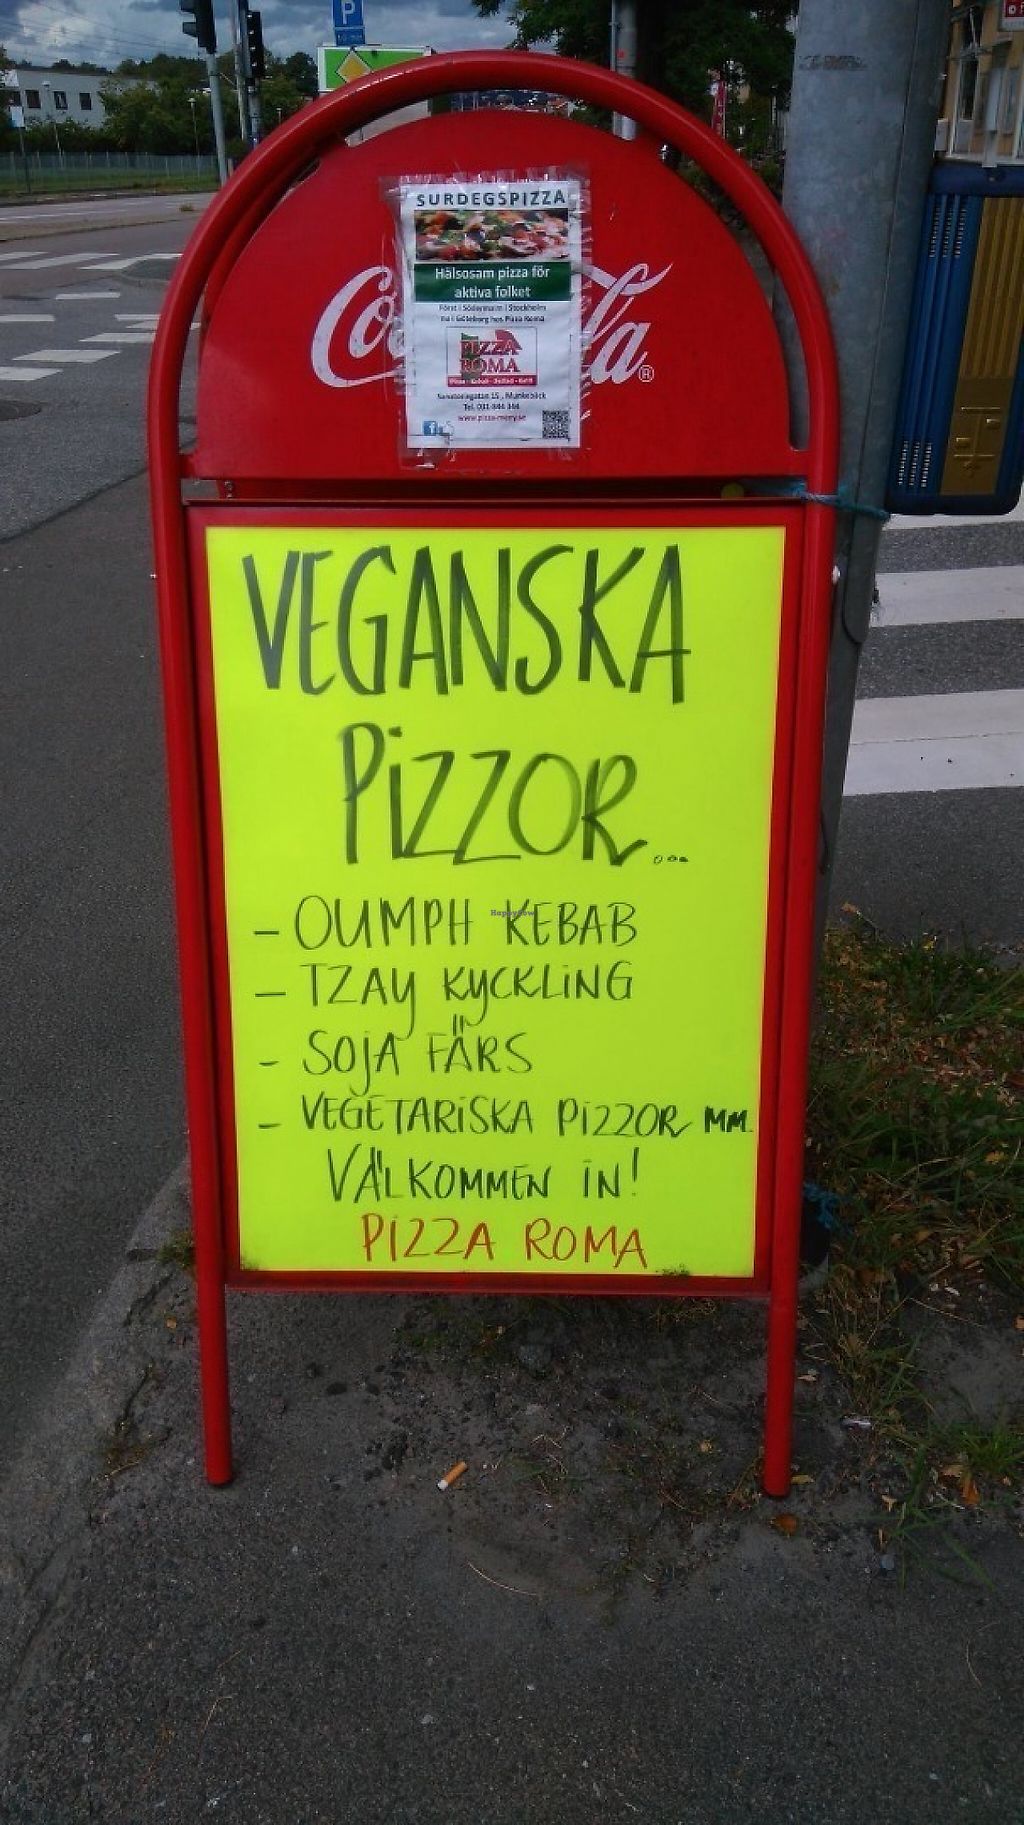 P
SURDEGSPIZZA
Hälsosam pizza för
aktiva folket
Först i Södermalm i Stockholm
nu i Göteborg hos Pizza Roma
Coca-Cola®
PIZZA
ROMA
Pizza - Kebab - Sallad - Grill
Sanatoriegatan 15, Munkebäck
Tel. 031-844 344
www.pizza-meny.se
f
VEGANSKA
PIZZOR...
- OUMPH KEBAB
- TZAY KYCKLING
- SOJA FÄRS
- VEGETARISKA PIZZOR MM.
VÄLKOMMEN IN!
PIZZA ROMA
HappyCow